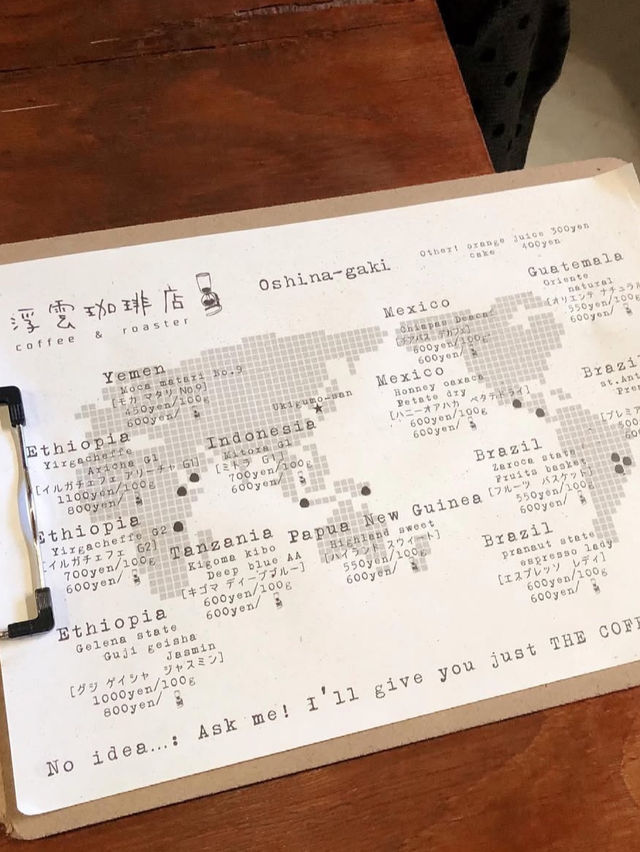 浮雲珈琲店
coffee & roaster
Oshina-gaki
Other! orange juice 300yen
cake 400yen
Guatemala
Oriente
natural
[オリエンテ ナチュラル
550yen/100g
600yen/
Mexico
Chiapas Decaf
[チアパス デカフェ]
600yen/100g
600yen/
Mexico
Honney oaxaca
Petate dry
[ハニーオアハカ ペタテドライ]
600yen/100g
600yen/
Yemen
Moca matari No.9
[モカ マタリ NO9]
450yen/100g
600yen/
Ukigumo-san
Indonesia
Mitora G1
[ミトラ G1]
700yen/100g
600yen/
Ethiopia
Yirgacheffe
Aricha G1
[イルガチェフェ アリーチャ G1]
1100yen/100g
800yen/
Ethiopia
Yirgacheffe G2
[イルガチェフェ G2]
700yen/100g
600yen/
Tanzania
Kigoma kibo
Deep blue AA
[キゴマ ディープブルー]
600yen/100g
600yen/
Papua New Guinea
Highland sweet
[ハイランド スウィート]
550yen/100g
600yen/
Brazil
st.Ant
Pre
[プレミア
500
60
Brazil
Zaroca state
Fruits basket
[フルーツ バスケット]
550yen/100g
600yen/
Brazil
pranaut state
espresso lady
[エスプレッソ レディ]
600yen/100g
600yen/
Ethiopia
Gelena state
Guji geisha
Jasmin
[グジ ゲイシャ ジャスミン]
1000yen/100g
800yen/
No idea...: Ask me! I'll give you just THE COFF